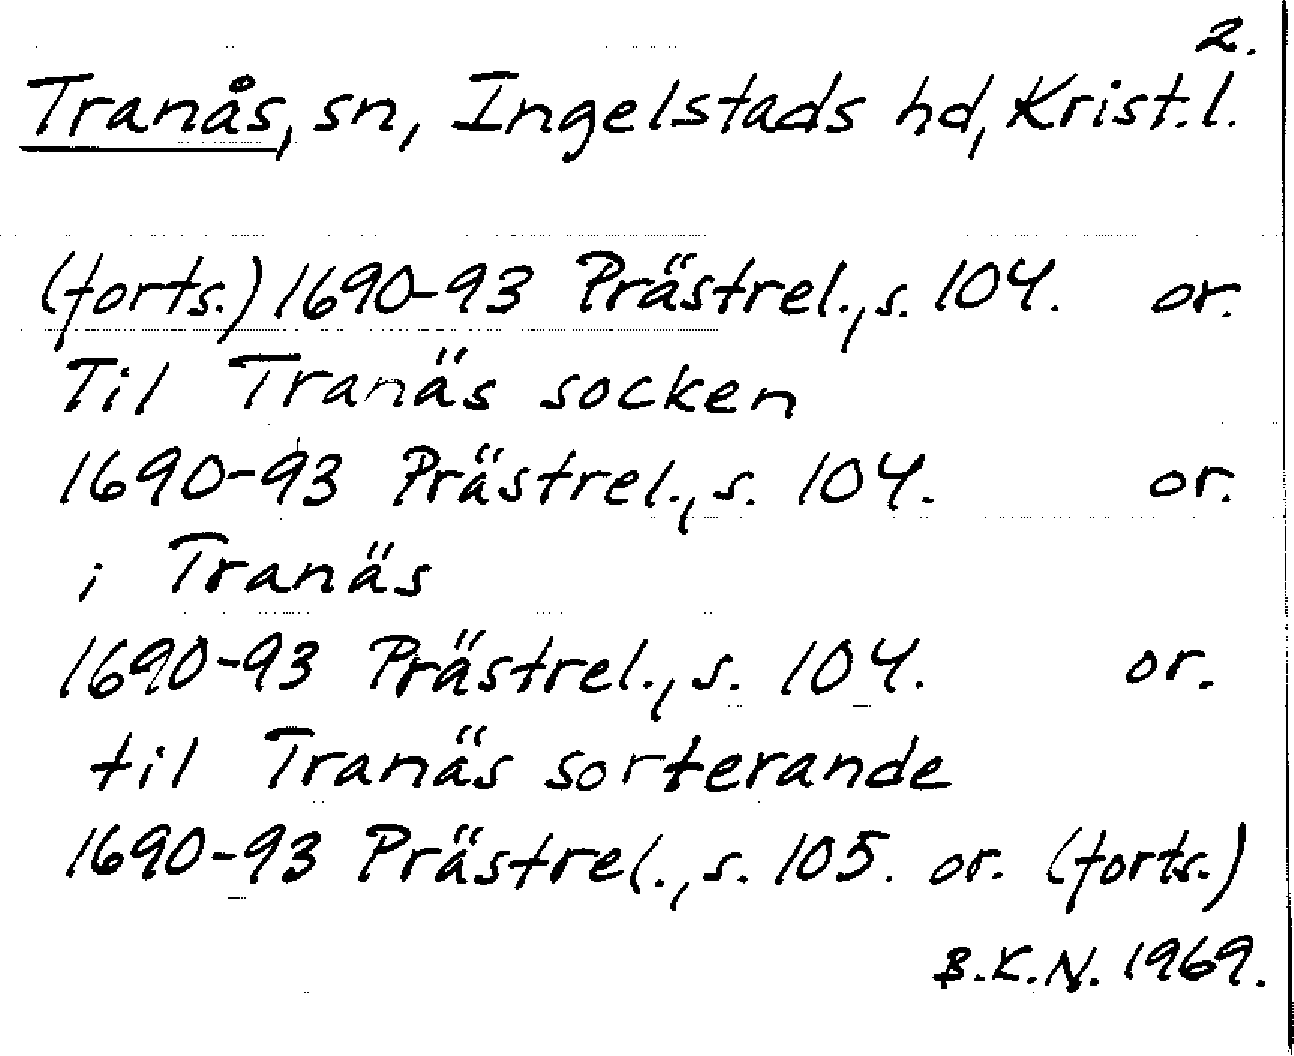 2.
Tranås, sn, Ingelstads hd, Krist.l.
(forts.) 1690-93 Prästrel., s. 104. or.
Til Tranäs socken
1690-93 Prästrel., s. 104. or.
i Tranäs
1690-93 Prästrel., s. 104. or.
til Tranäs sorterande
1690-93 Prästrel., s. 105. or. (forts.)
B.K.N. 1969.